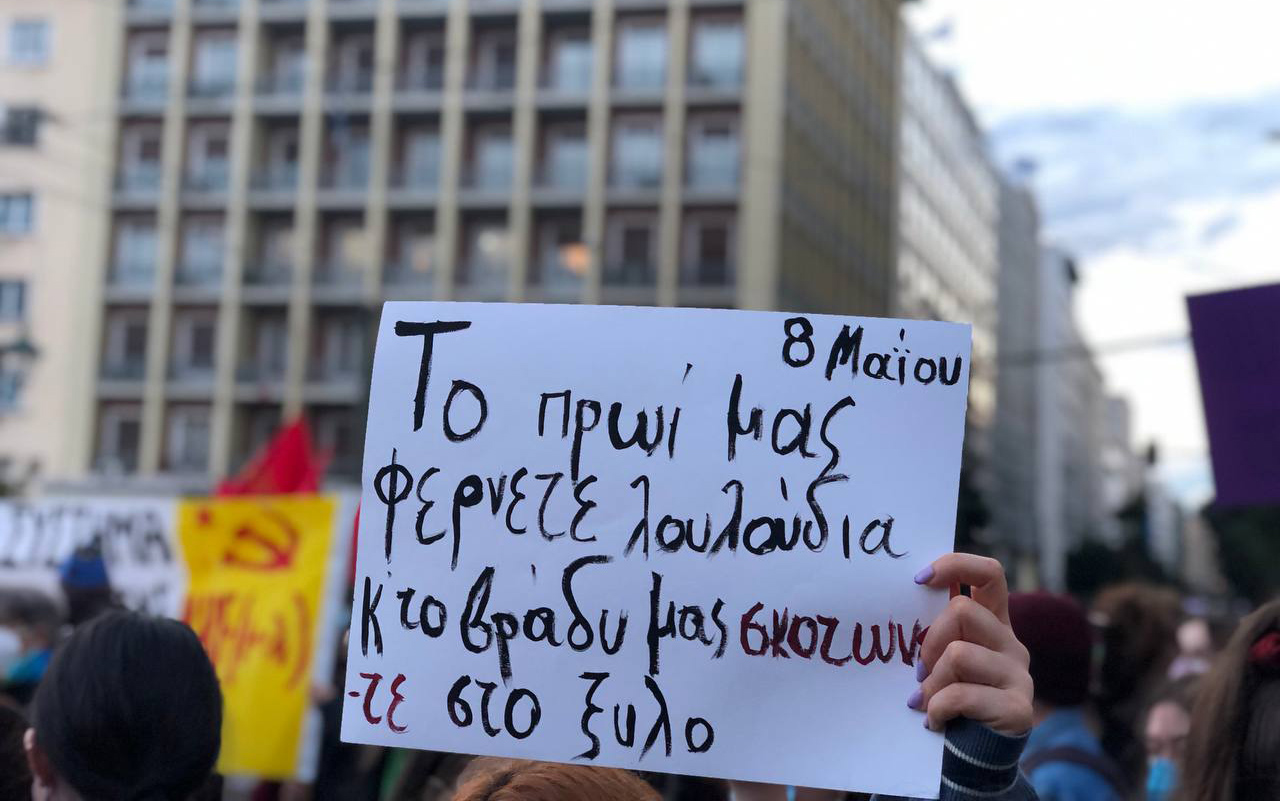 8 Μαΐου
Το πρωί μας
φερνετε λουλούδια
κ το βράδυ μας σκοτων
-τε στο ξυλο